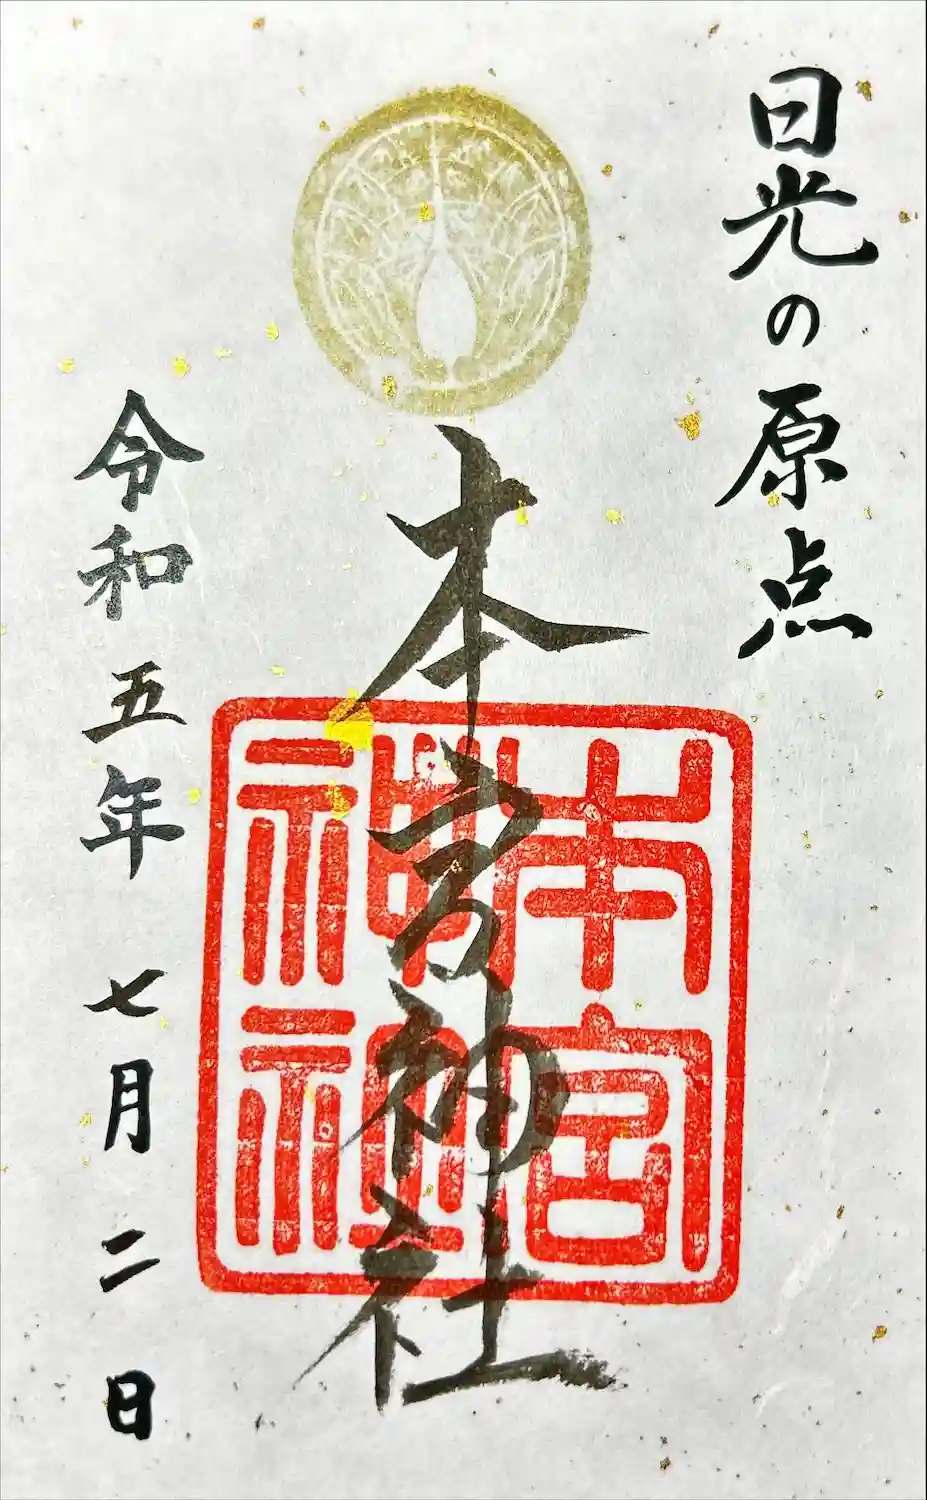 日光の原点
本宮神社
本宮
神社
令和五年七月二日